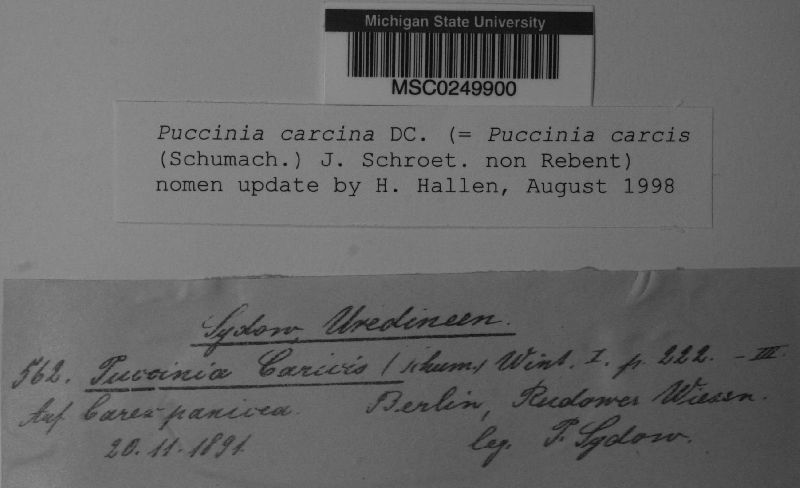 Michigan State University
MSC0249900
Puccinia carcina DC. (= Puccinia carcis
(Schumach.) J. Schroet. non Rebent)
nomen update by H. Hallen, August 1998
Sydow, Uredineen.
562. Puccinia Caricis (Schum.) Wint. I. p. 222. - III.
Auf Carex panicea. Berlin, Rudower Wiesen.
20.11.1891 leg. P. Sydow.